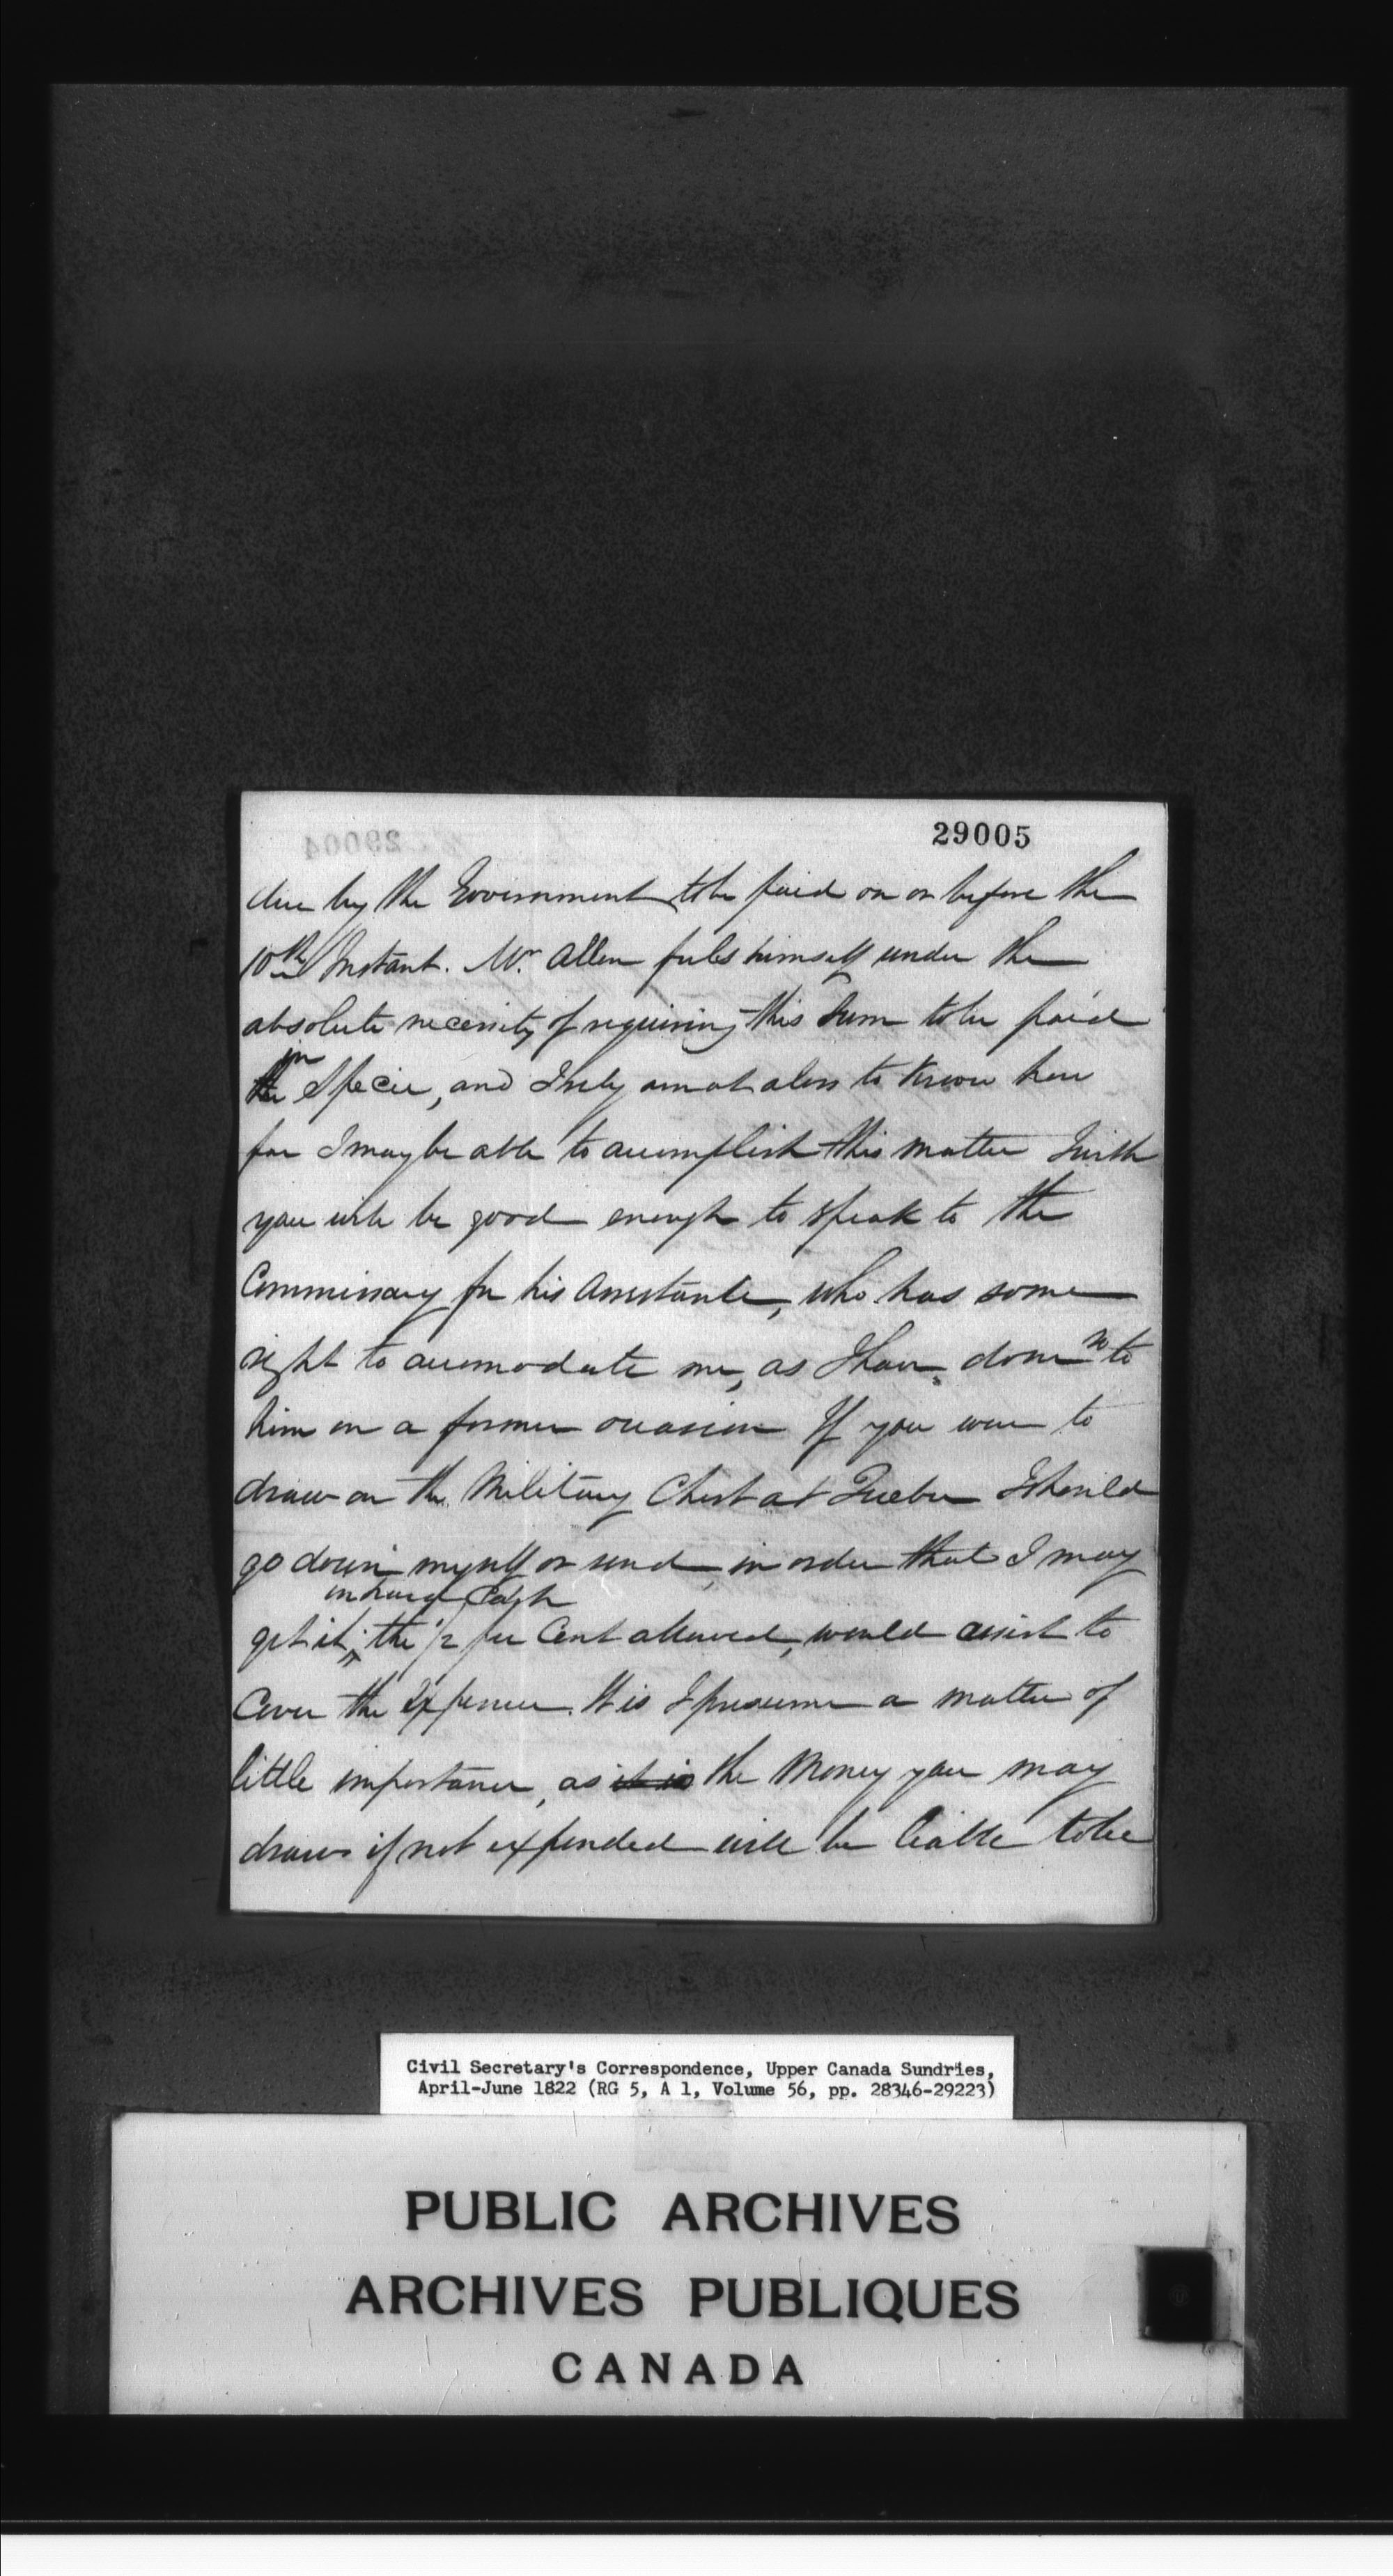 29005
due by the Government to be paid on or before the
10th Instant. Mr. Allen feels himself under the
absolute necessity of requiring this Sum to be paid
in
Specie, and I rely am at a loss to know how
far I may be able to accomplish this matter I wish
you will be good enough to speak to the
Commissary for his Assistance, who has some
right to accomodate me, as I have done so to
him on a former occasion If you were to
draw on the Military Chest at Quebec I should
go down myself or send, in order that I may
in hard Cash
get it, the 1/2 per Cent allowed, would assist to
Cover the Expence. It is I presume a matter of
little importance, as it is the Money you may
draw if not expended will be liable to be
Civil Secretary's Correspondence, Upper Canada Sundries,
April-June 1822 (RG 5, A 1, Volume 56, pp. 28346-29223)
PUBLIC ARCHIVES
ARCHIVES PUBLIQUES
CANADA